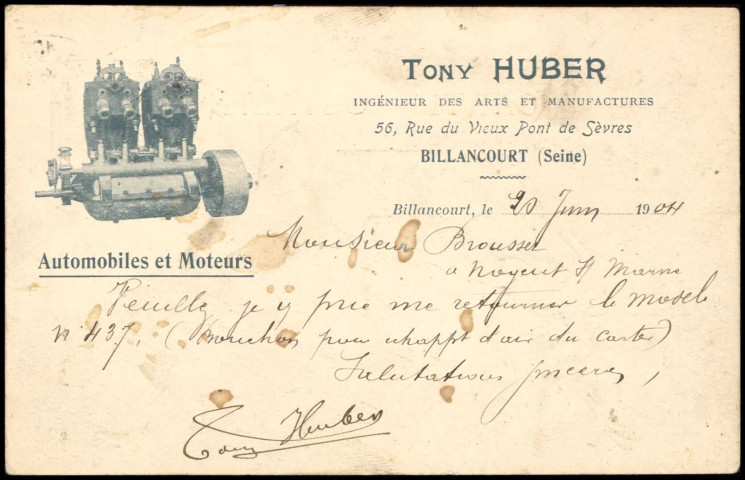 TONY HUBER
INGÉNIEUR DES ARTS ET MANUFACTURES
56, Rue du Vieux Pont de Sèvres
BILLANCOURT (Seine)
Billancourt, le 20 Juin 1904
Automobiles et Moteurs
Monsieur Brousset
a Nogent s/ Marne
Veuillez je v prie me retourner le modele
n° 437. (Bouchon pour échappt d'air du carter)
Salutations sinceres,
Tony Huber